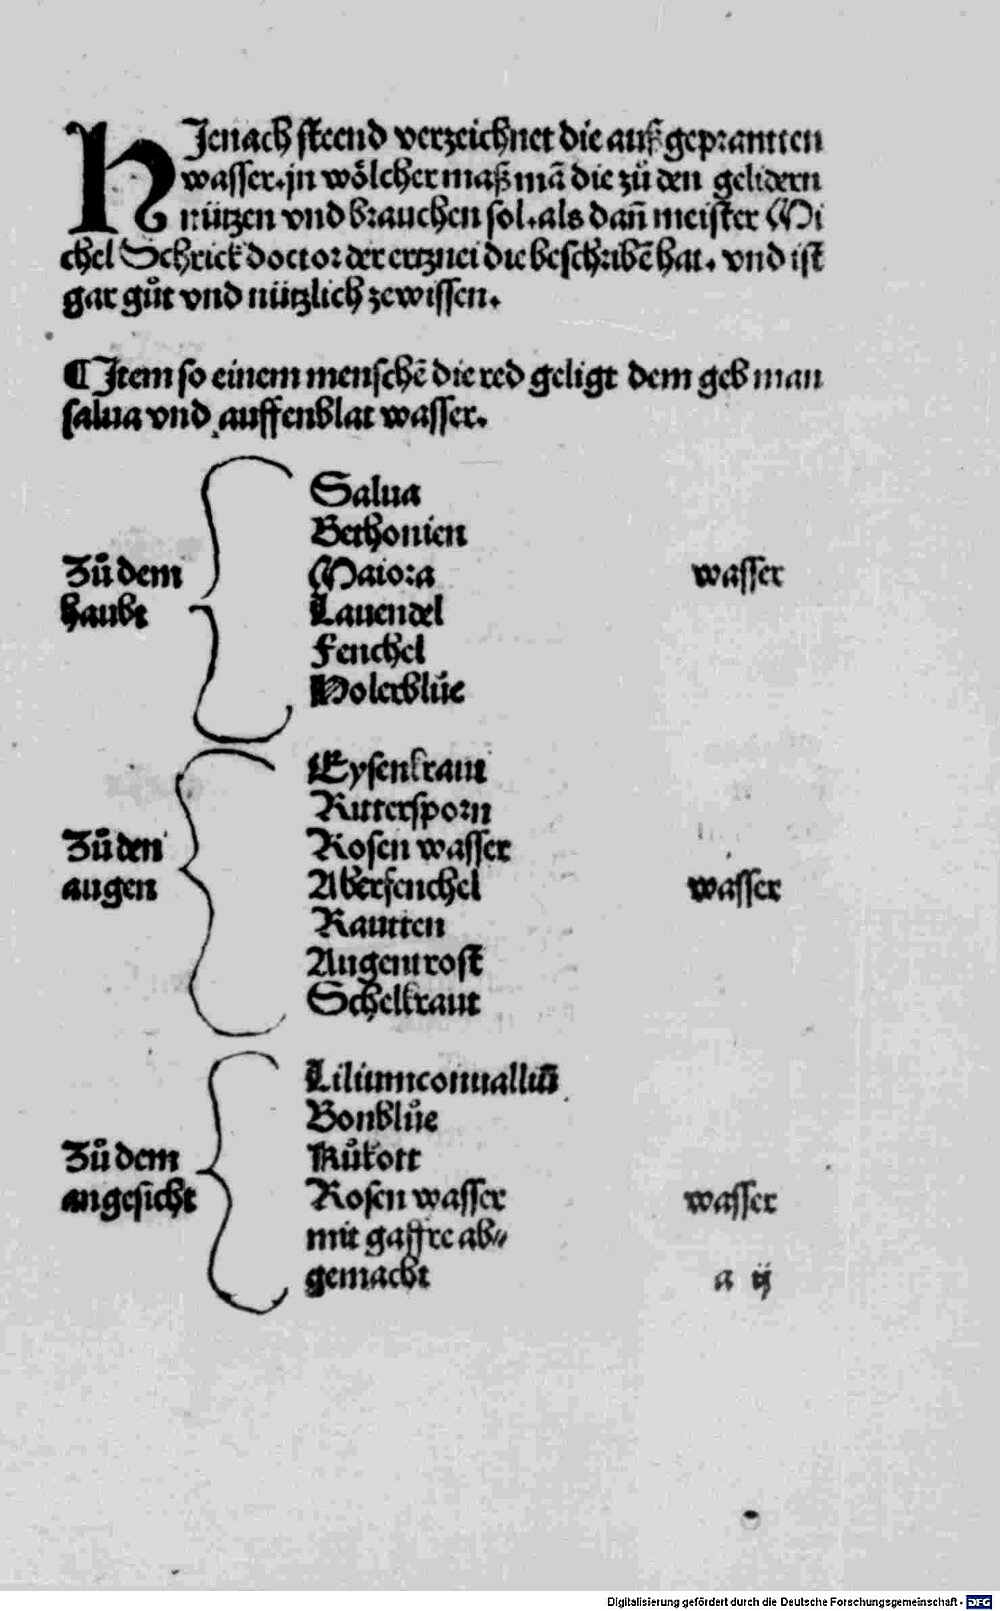 HJenach steend verzeichnet die auß geprantten
wasser. jn wölcher maß mā die zů den gelidern
nützen vnd brauchen sol. als dañ meister Mi
chel Schrick doctor der ertznei die beschribē hat. vnd ist
gar gůt vnd nützlich ze wissen.
¶ Jtem so einem menschē die red geligt dem geb man
salua vnd auffenblat wasser.
Zů dem
haubt
Salua
Bethonien
Maiora
Lauendel
Fenchel
Holerblůe
wasser
Zů den
augen
Eysenkraut
Rittersporn
Rosen wasser
Aberfenchel
Rautten
Augentrost
Schelkraut
wasser
Zů dem
angesicht
Liliumconualliū
Bonblůe
Kůkott
Rosen wasser
mit gaffre ab⸗
gemacht
wasser
a ij
Digitalisierung gefördert durch die Deutsche Forschungsgemeinschaft - DFG